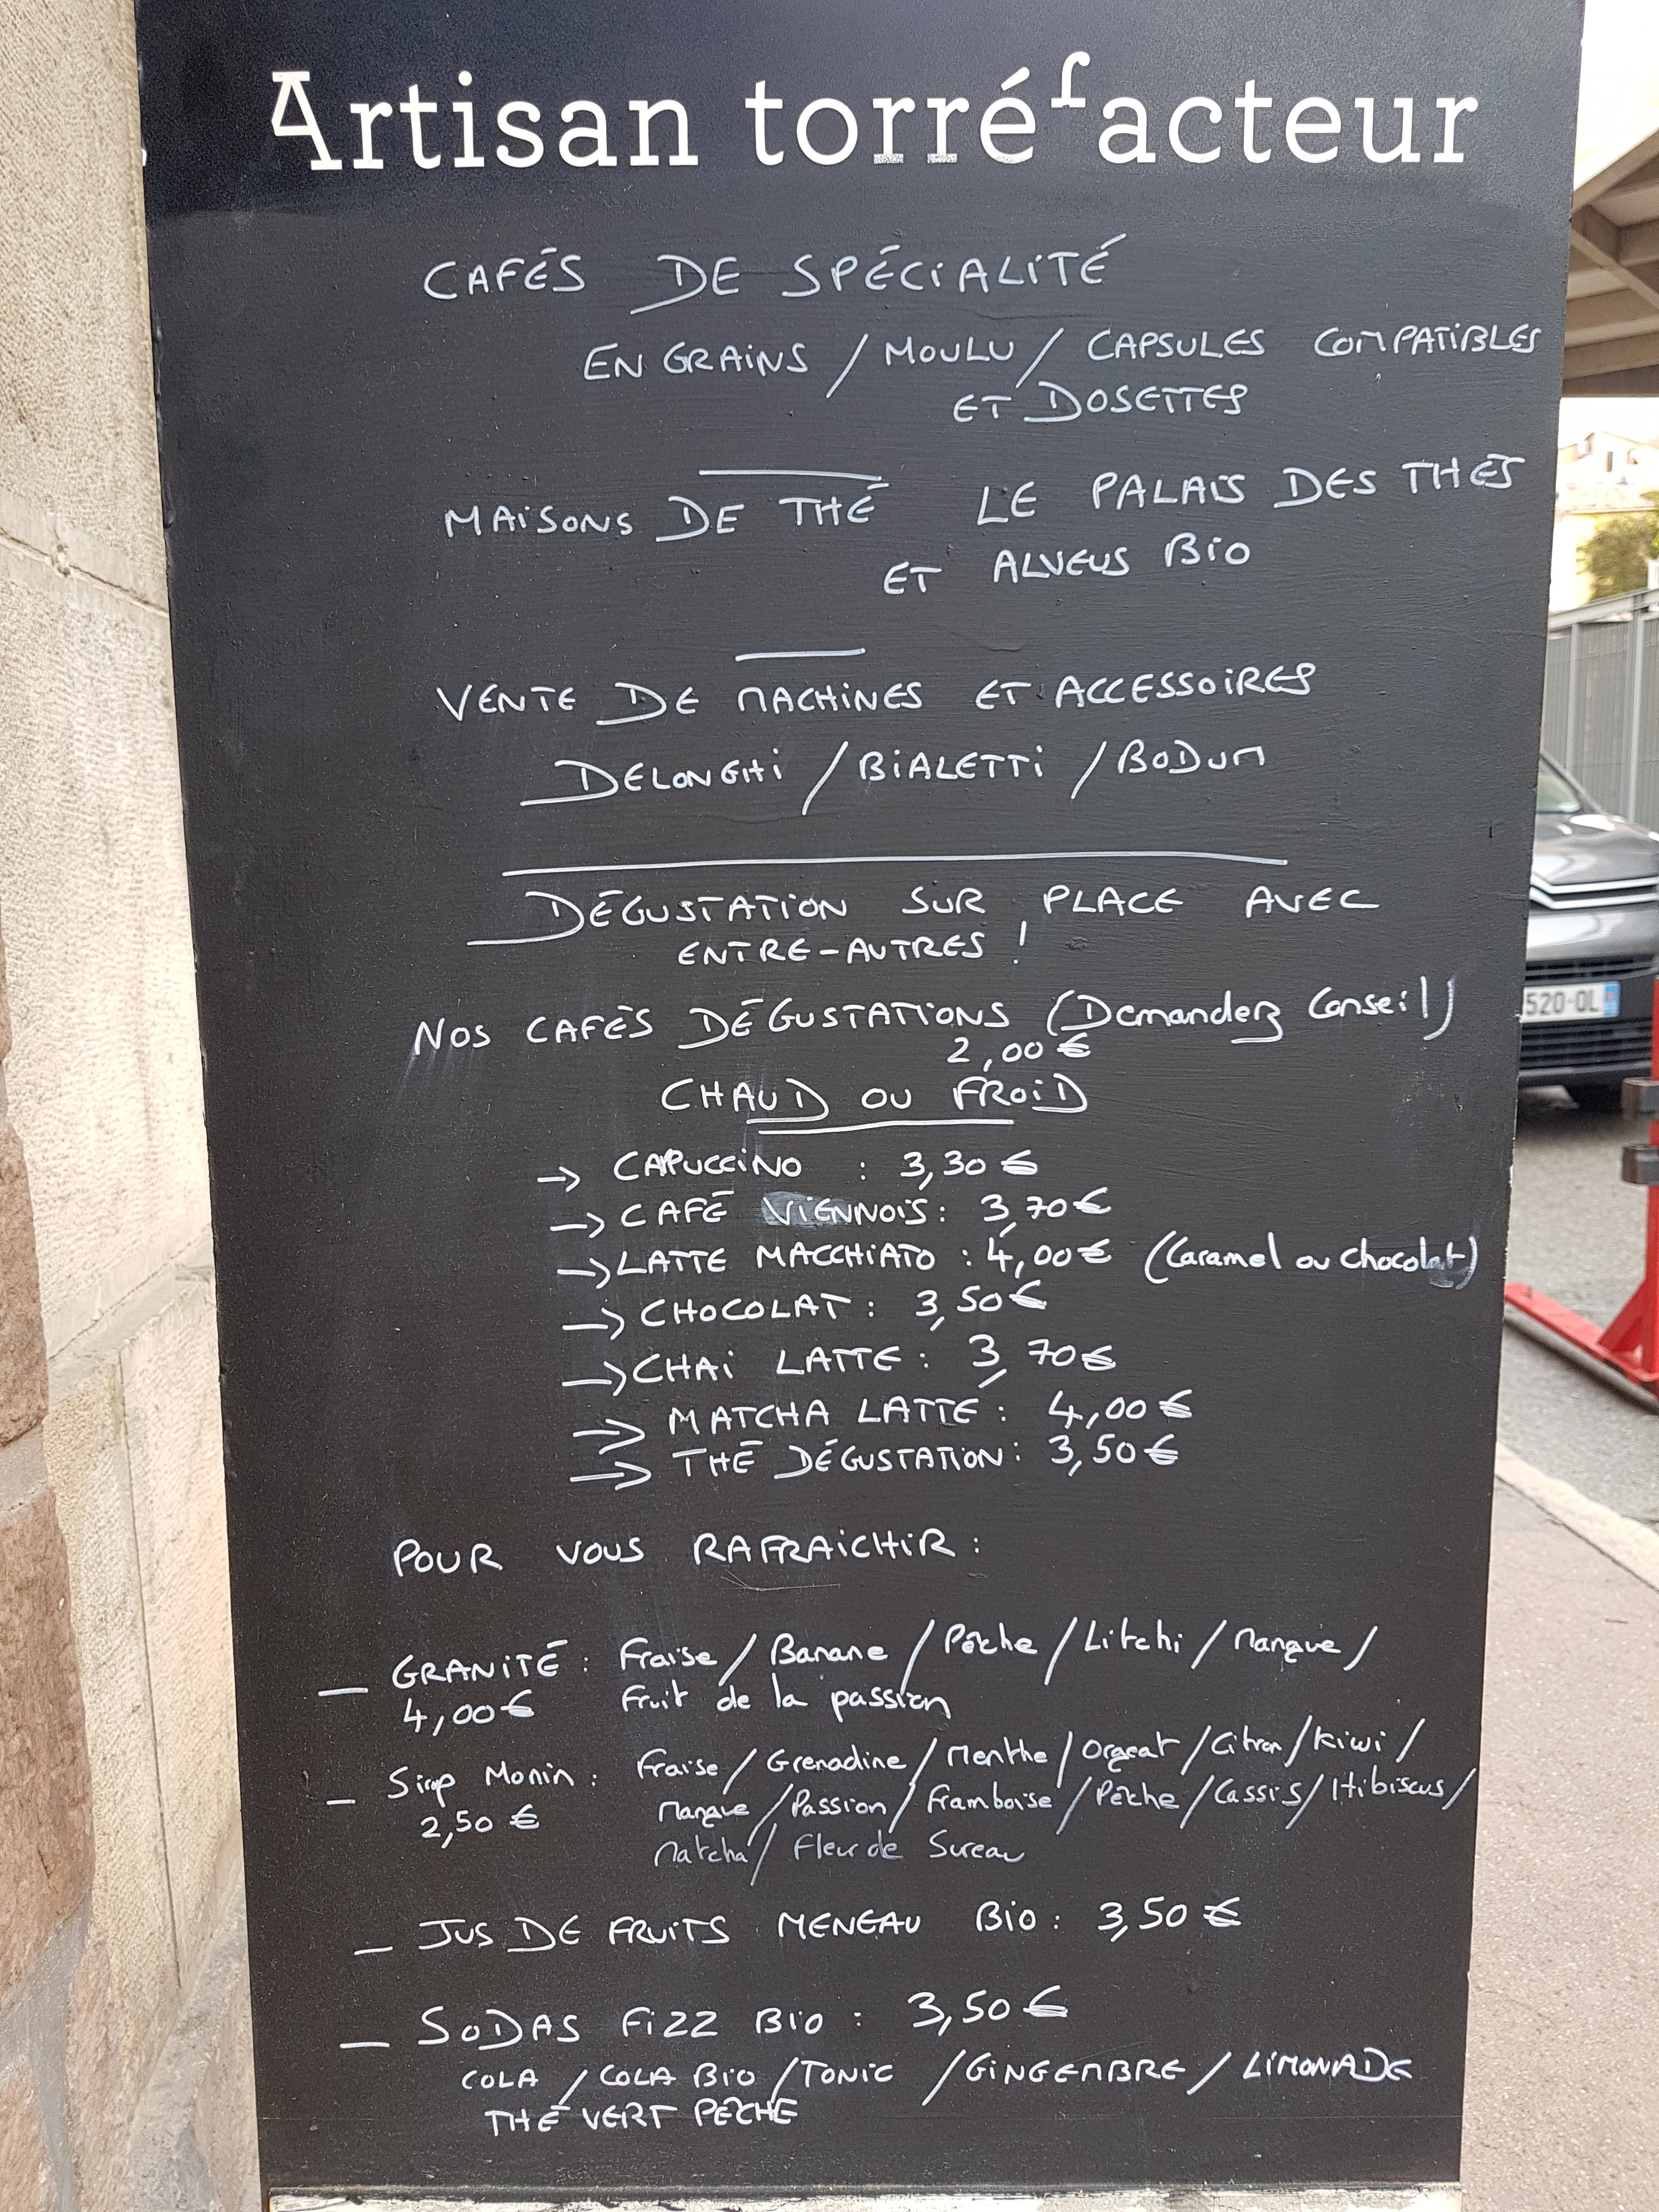 Artisan torréfacteur
CAFÉS DE SPÉCIALITÉ
EN GRAINS / MOULU / CAPSULES COMPATIBLES
ET DOSETTES
MAISONS DE THÉ LE PALAIS DES THES
ET ALVEUS BIO
VENTE DE MACHINES ET ACCESSOIRES
DELONGHI / BIALETTI / BODUM
DÉGUSTATION SUR PLACE AVEC
ENTRE-AUTRES !
NOS CAFÉS DÉGUSTATIONS (Demandez Conseil)
2,00 €
CHAUD OU FROID
→ CAPUCCINO : 3,30 €
→ CAFÉ VIENNOIS : 3,70 €
→ LATTE MACCHIATO : 4,00 € (Caramel ou chocolat)
→ CHOCOLAT : 3,50 €
→ CHAI LATTE : 3,70 €
→ MATCHA LATTE : 4,00 €
→ THÉ DÉGUSTATION : 3,50 €
POUR VOUS RAFRAICHIR :
– GRANITÉ : Fraise / Banane / Pêche / Litchi / Mangue /
4,00 € Fruit de la passion
– Sirop Monin : Fraise / Grenadine / Menthe / Orgeat / Citron / Kiwi /
2,50 € Mangue / Passion / Framboise / Pêche / Cassis / Hibiscus /
Matcha / Fleur de Sureau
– JUS DE FRUITS MENEAU BIO : 3,50 €
– SODAS FIZZ BIO : 3,50 €
COLA / COLA BIO / TONIC / GINGEMBRE / LIMONADE
THÉ VERT PÊCHE
520-QL